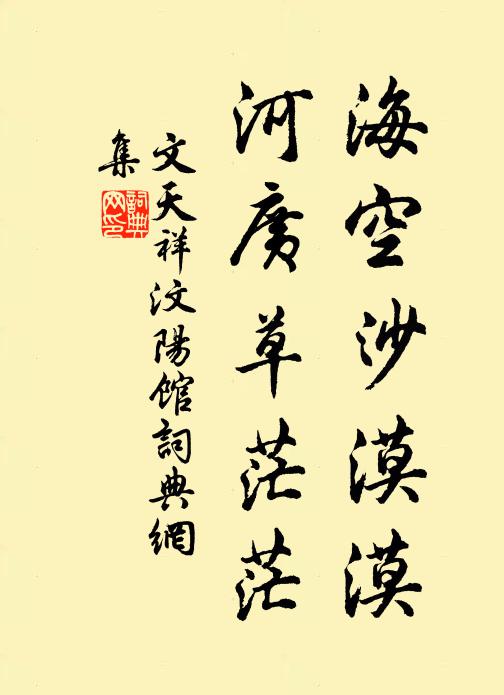 海空沙漠漠
河廣草茫茫
文天祥汶陽館詞典網
集
詞典網印